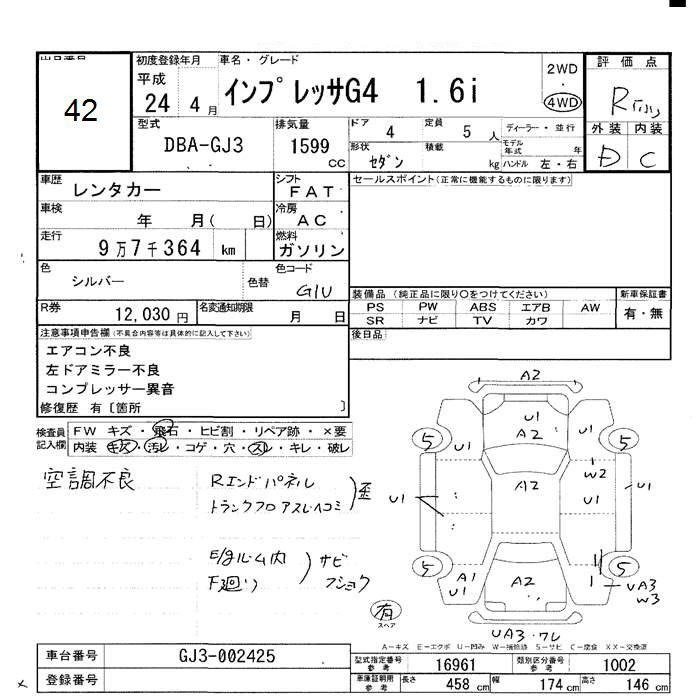 出品番号
42
初度登録年月
平成
24年 4月
車名・グレード
インプレッサG4 1.6i
2WD
4WD
評価点
R
外装 内装
D C
型式
DBA-GJ3
排気量
1599 CC
ドア
4
定員
5 人
形状
セダン
積載
kg
ディーラー・並行
モデル年式 年
ハンドル 左・右
車歴
レンタカー
シフト
FAT
車検
年 月( 日)
冷房
AC
走行
9万7千364 km
燃料
ガソリン
色
シルバー
色替
色コード
G1U
R券
12,030 円
名変通知期限
月 日
セールスポイント(正常に機能するものに限ります)
装備品 (純正品に限り○をつけてください)
PS PW ABS エアB AW
SR ナビ TV カワ
新車保証書
有・無
後日品
注意事項申告欄(不具合内容等は具体的に記入して下さい)
エアコン不良
左ドアミラー不良
コンプレッサー異音
修復歴 有〔箇所 〕
検査員記入欄
FW キズ・飛石・ヒビ割・リペア跡・×要
内装 キズ・汚レ・コゲ・穴・スレ・キレ・破レ
空調不良
Rエンドパネル
トランクフロアスレヘコミ
歪
E/gルーム内
F廻り
サビ
フショク
A2
U1
A2
U1
U1
5
5
W2
U1
U1
U1
A2
5
5
A1
U1
A2
UA3
W3
UA3・ワレ
有
スペア
A-キズ E-エクボ U-凹み W-補修跡 S-サビ C-腐食 XX-交換済
車台番号
GJ3-002425
登録番号
型式指定番号 参考
16961
類別区分番号 参考
1002
車庫証明用 参考
長さ 458 cm
幅 174 cm
高さ 146 cm